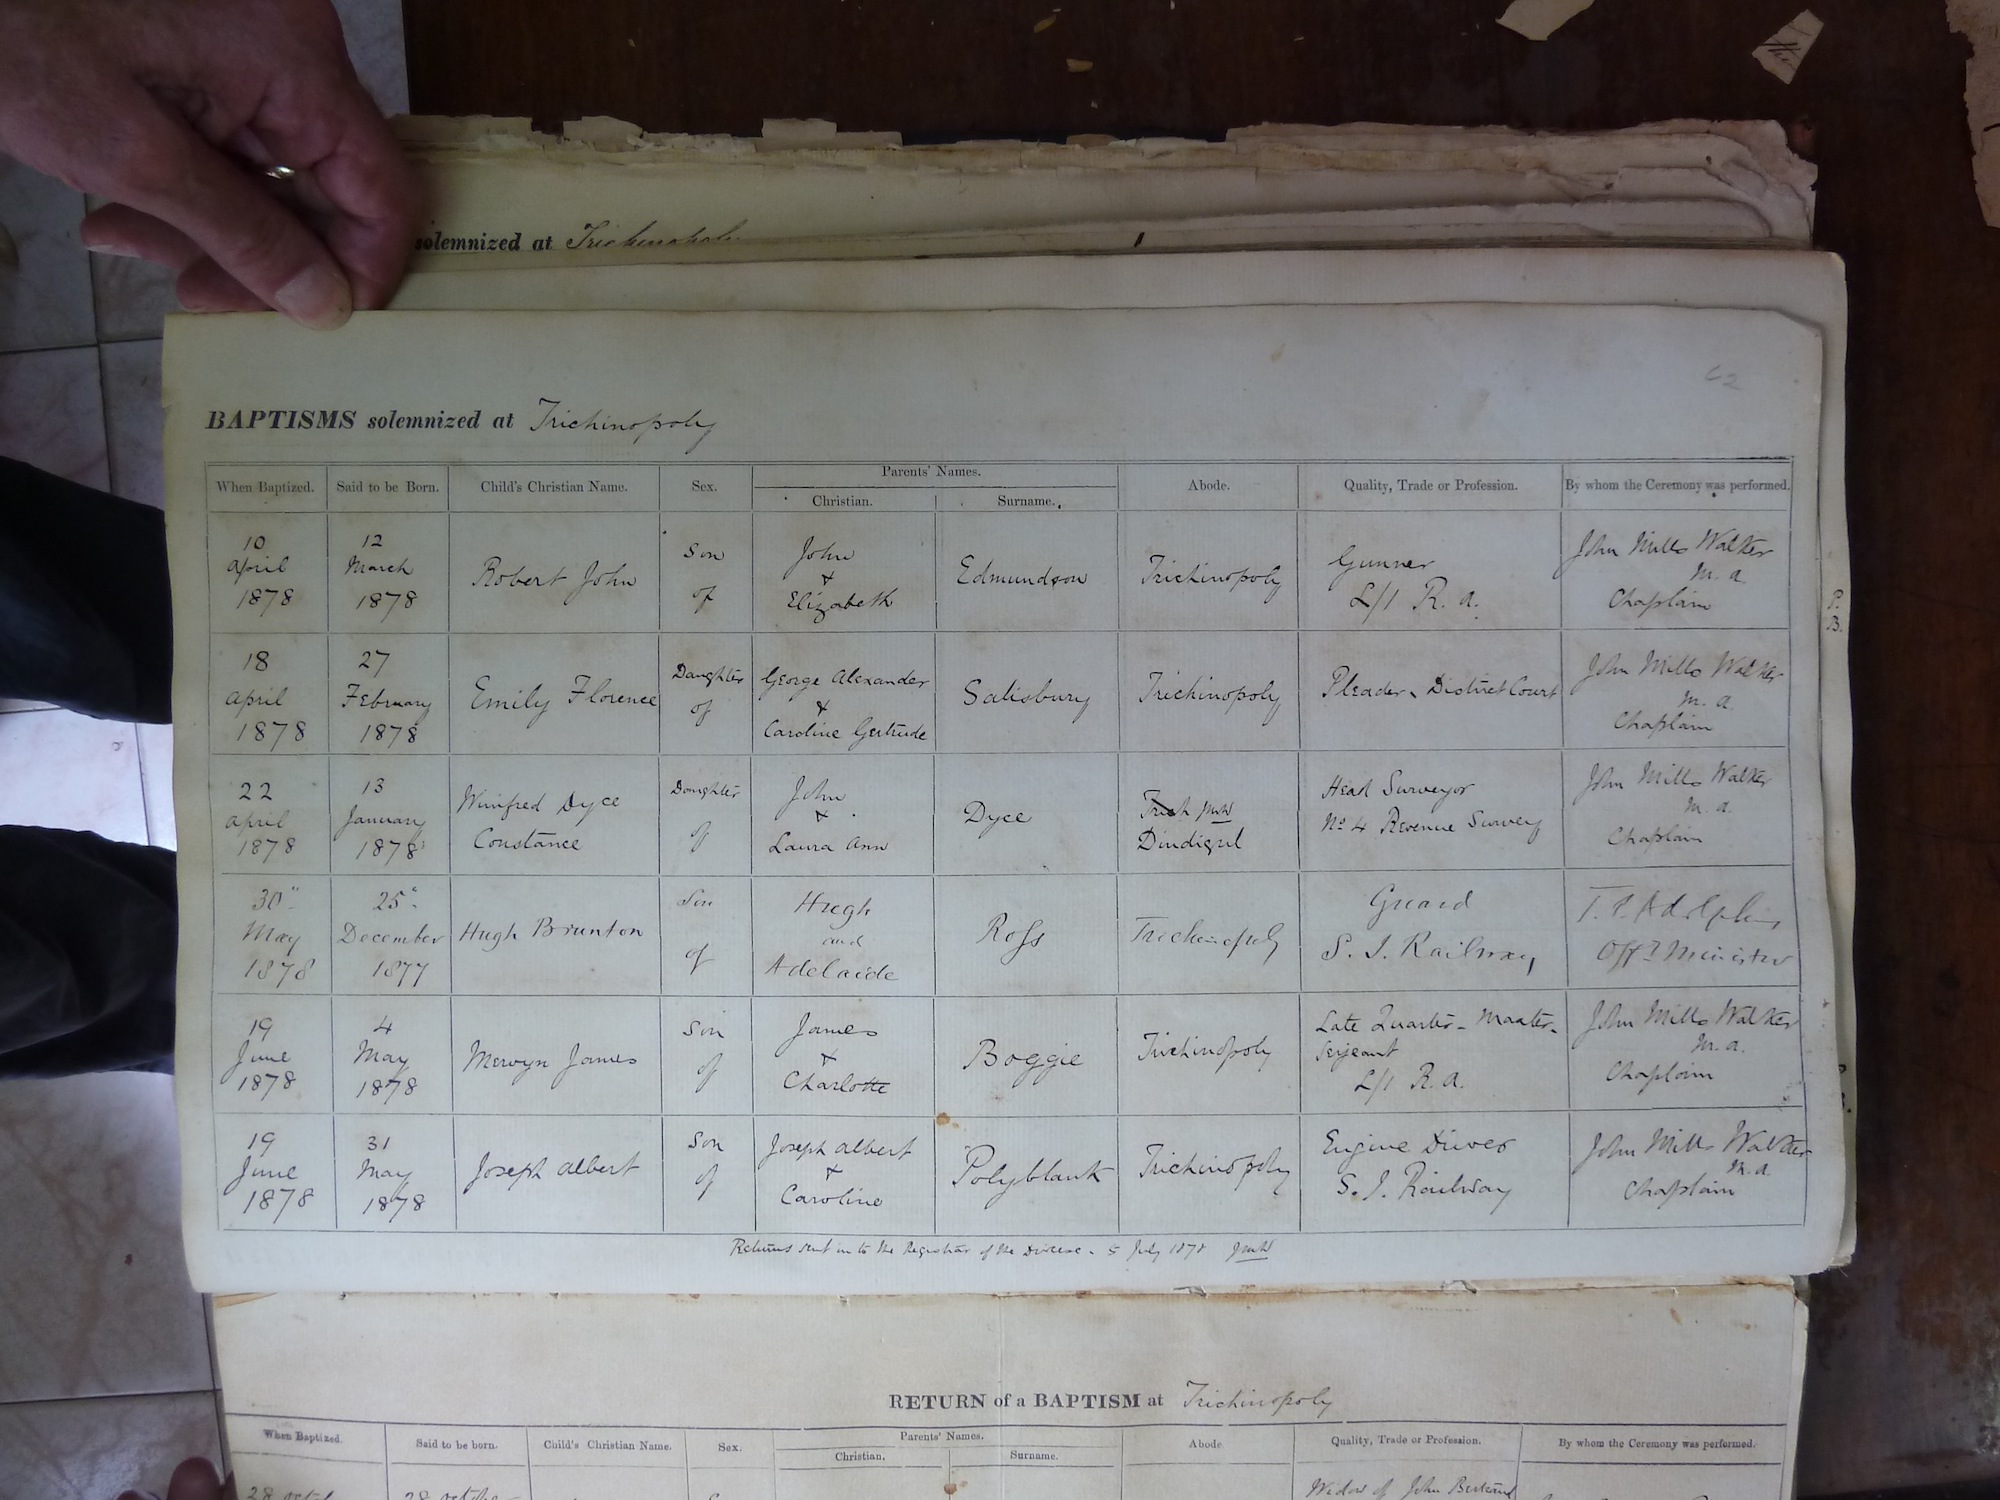 solemnized at Trichinopoly
62
BAPTISMS solemnized at Trichinopoly
When Baptized. Said to be Born. Child's Christian Name. Sex. Parents' Names. Abode. Quality, Trade or Profession. By whom the Ceremony was performed.
Christian. Surname.
10 April 1878
12 March 1878
Robert John
Son of
John
+
Elizabeth
Edmundson
Trichinopoly
Gunner
L/1 R. A.
John Mills Walker
M. A.
Chaplain
18 April 1878
27 February 1878
Emily Florence
Daughter of
George Alexander
+
Caroline Gertrude
Salisbury
Trichinopoly
Pleader, District Court
John Mills Walker
M. A.
Chaplain
22 April 1878
13 January 1878
Winifred Dyce
Constance
Daughter of
John
+
Laura Ann
Dyce
Trich JMW
Dindigul
Head Surveyor
No 4 Revenue Survey
John Mills Walker
M. A.
Chaplain
30" May 1878
25" December 1877
Hugh Brunton
Son of
Hugh
and
Adelaide
Ross
Trichinopoly
Guard
S. I. Railway
T. P. Adolphus
Offg Minister
19 June 1878
4 May 1878
Mervyn James
Son of
James
+
Charlotte
Boggie
Trichinopoly
Late Quarter-Master-
Serjeant
L/1 R. A.
John Mills Walker
M. A.
Chaplain
19 June 1878
31 May 1878
Joseph Albert
Son of
Joseph Albert
+
Caroline
Polyblank
Trichinopoly
Engine Driver
S. I. Railway
John Mills Walker
M. A.
Chaplain
Returns sent in to the Registrar of the Diocese. 5 July 1878 JMW
P.
B.
RETURN of a BAPTISM at Trichinopoly
When Baptized. Said to be born. Child's Christian Name. Sex. Parents' Names. Abode Quality, Trade or Profession. By whom the Ceremony was performed.
Christian. Surname.
28 28 Widow of John Bertrand